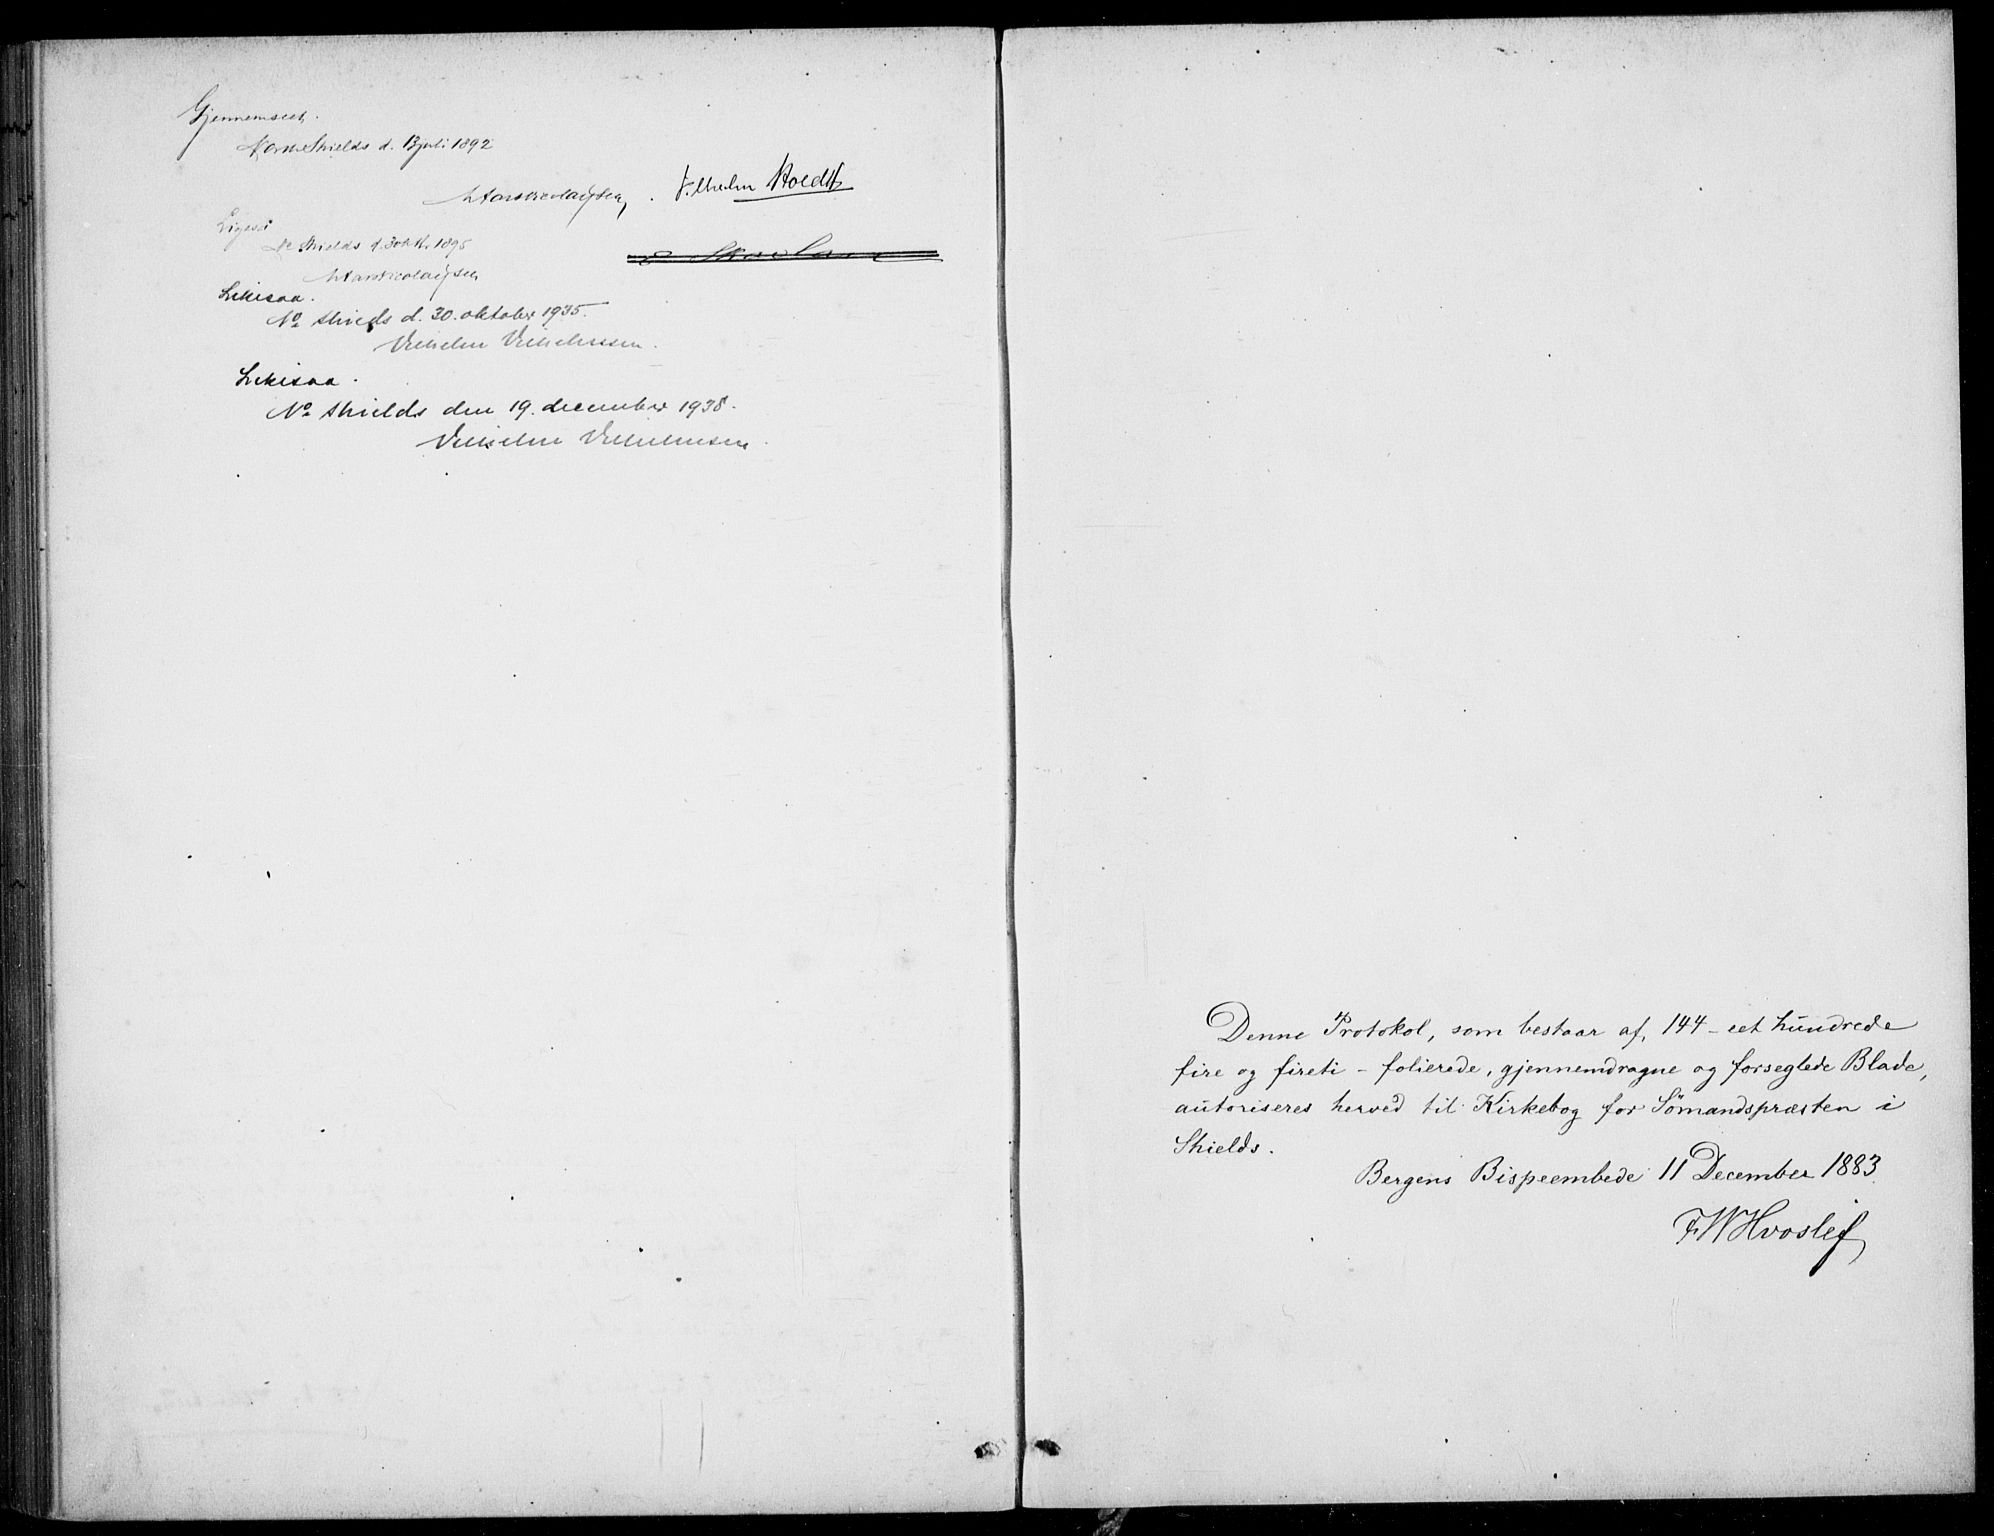 Gjennemseet.
North Shields d. 13 juli 1892
Vilhelm Holdt
Ligeså
No Shields d. 30 okt. 1895
Likesaa.
No Shields d. 30. oktober 1935.
Vilhelm Vilhelmsen.
Likesaa.
No Shields den 19. december 1938.
Vilhelm Vilhelmsen.
Denne Protokol, som bestaar af, 144 - eet hundrede
fire og fireti - folierede, gjennemdragne og forseglede Blade,
autoriseres herved til Kirkebog for Sömandspræsten i
Shields.
Bergens Bispeembede 11 December 1883.
FWHvoslef